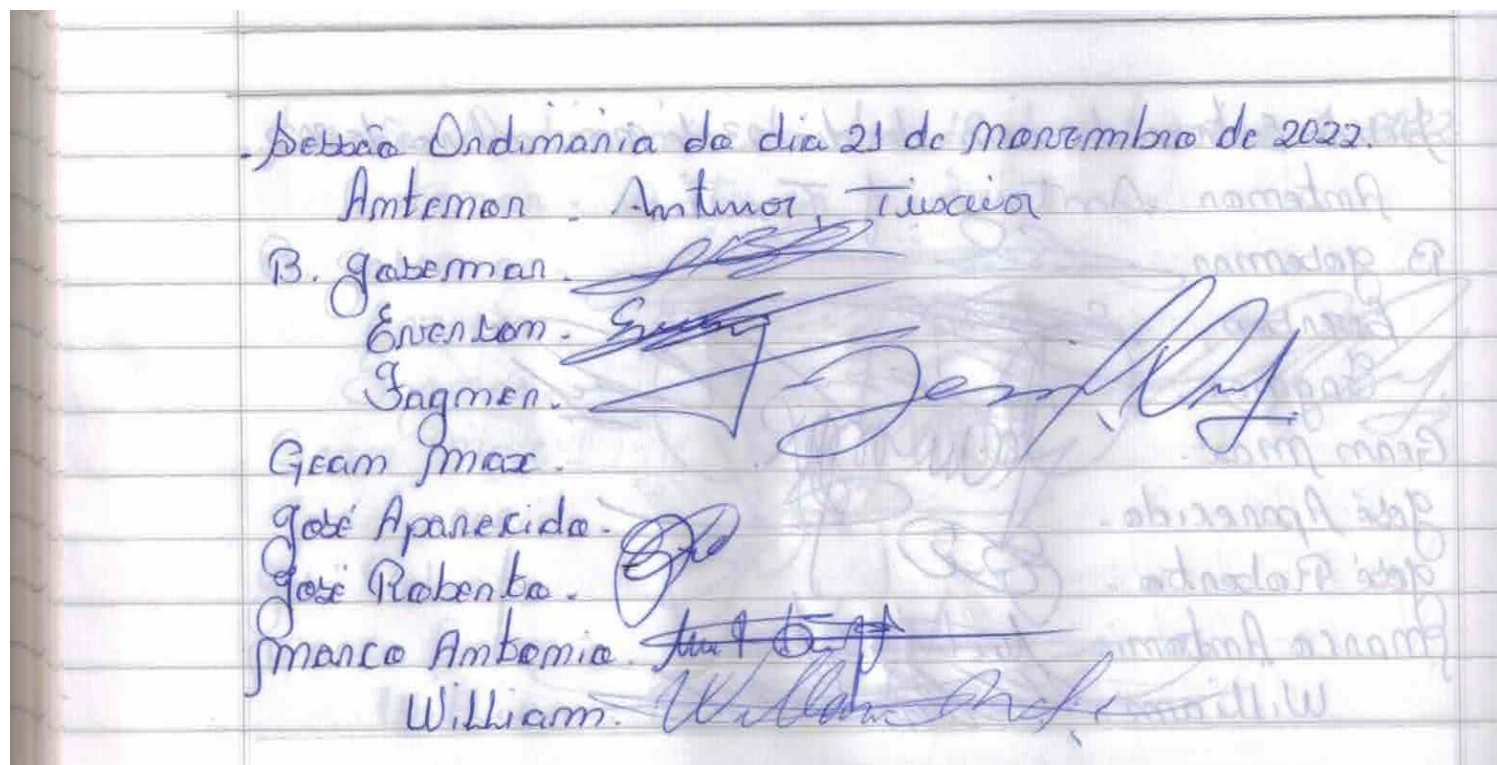 Sessão Ordinária do dia 21 de novembro de 2022.
Antenor. Antenor Teixeira
B. Goberman.
Everton.
Fagner.
Gean Max.
José Aparecido.
José Roberto.
Marco Antonio.
William.